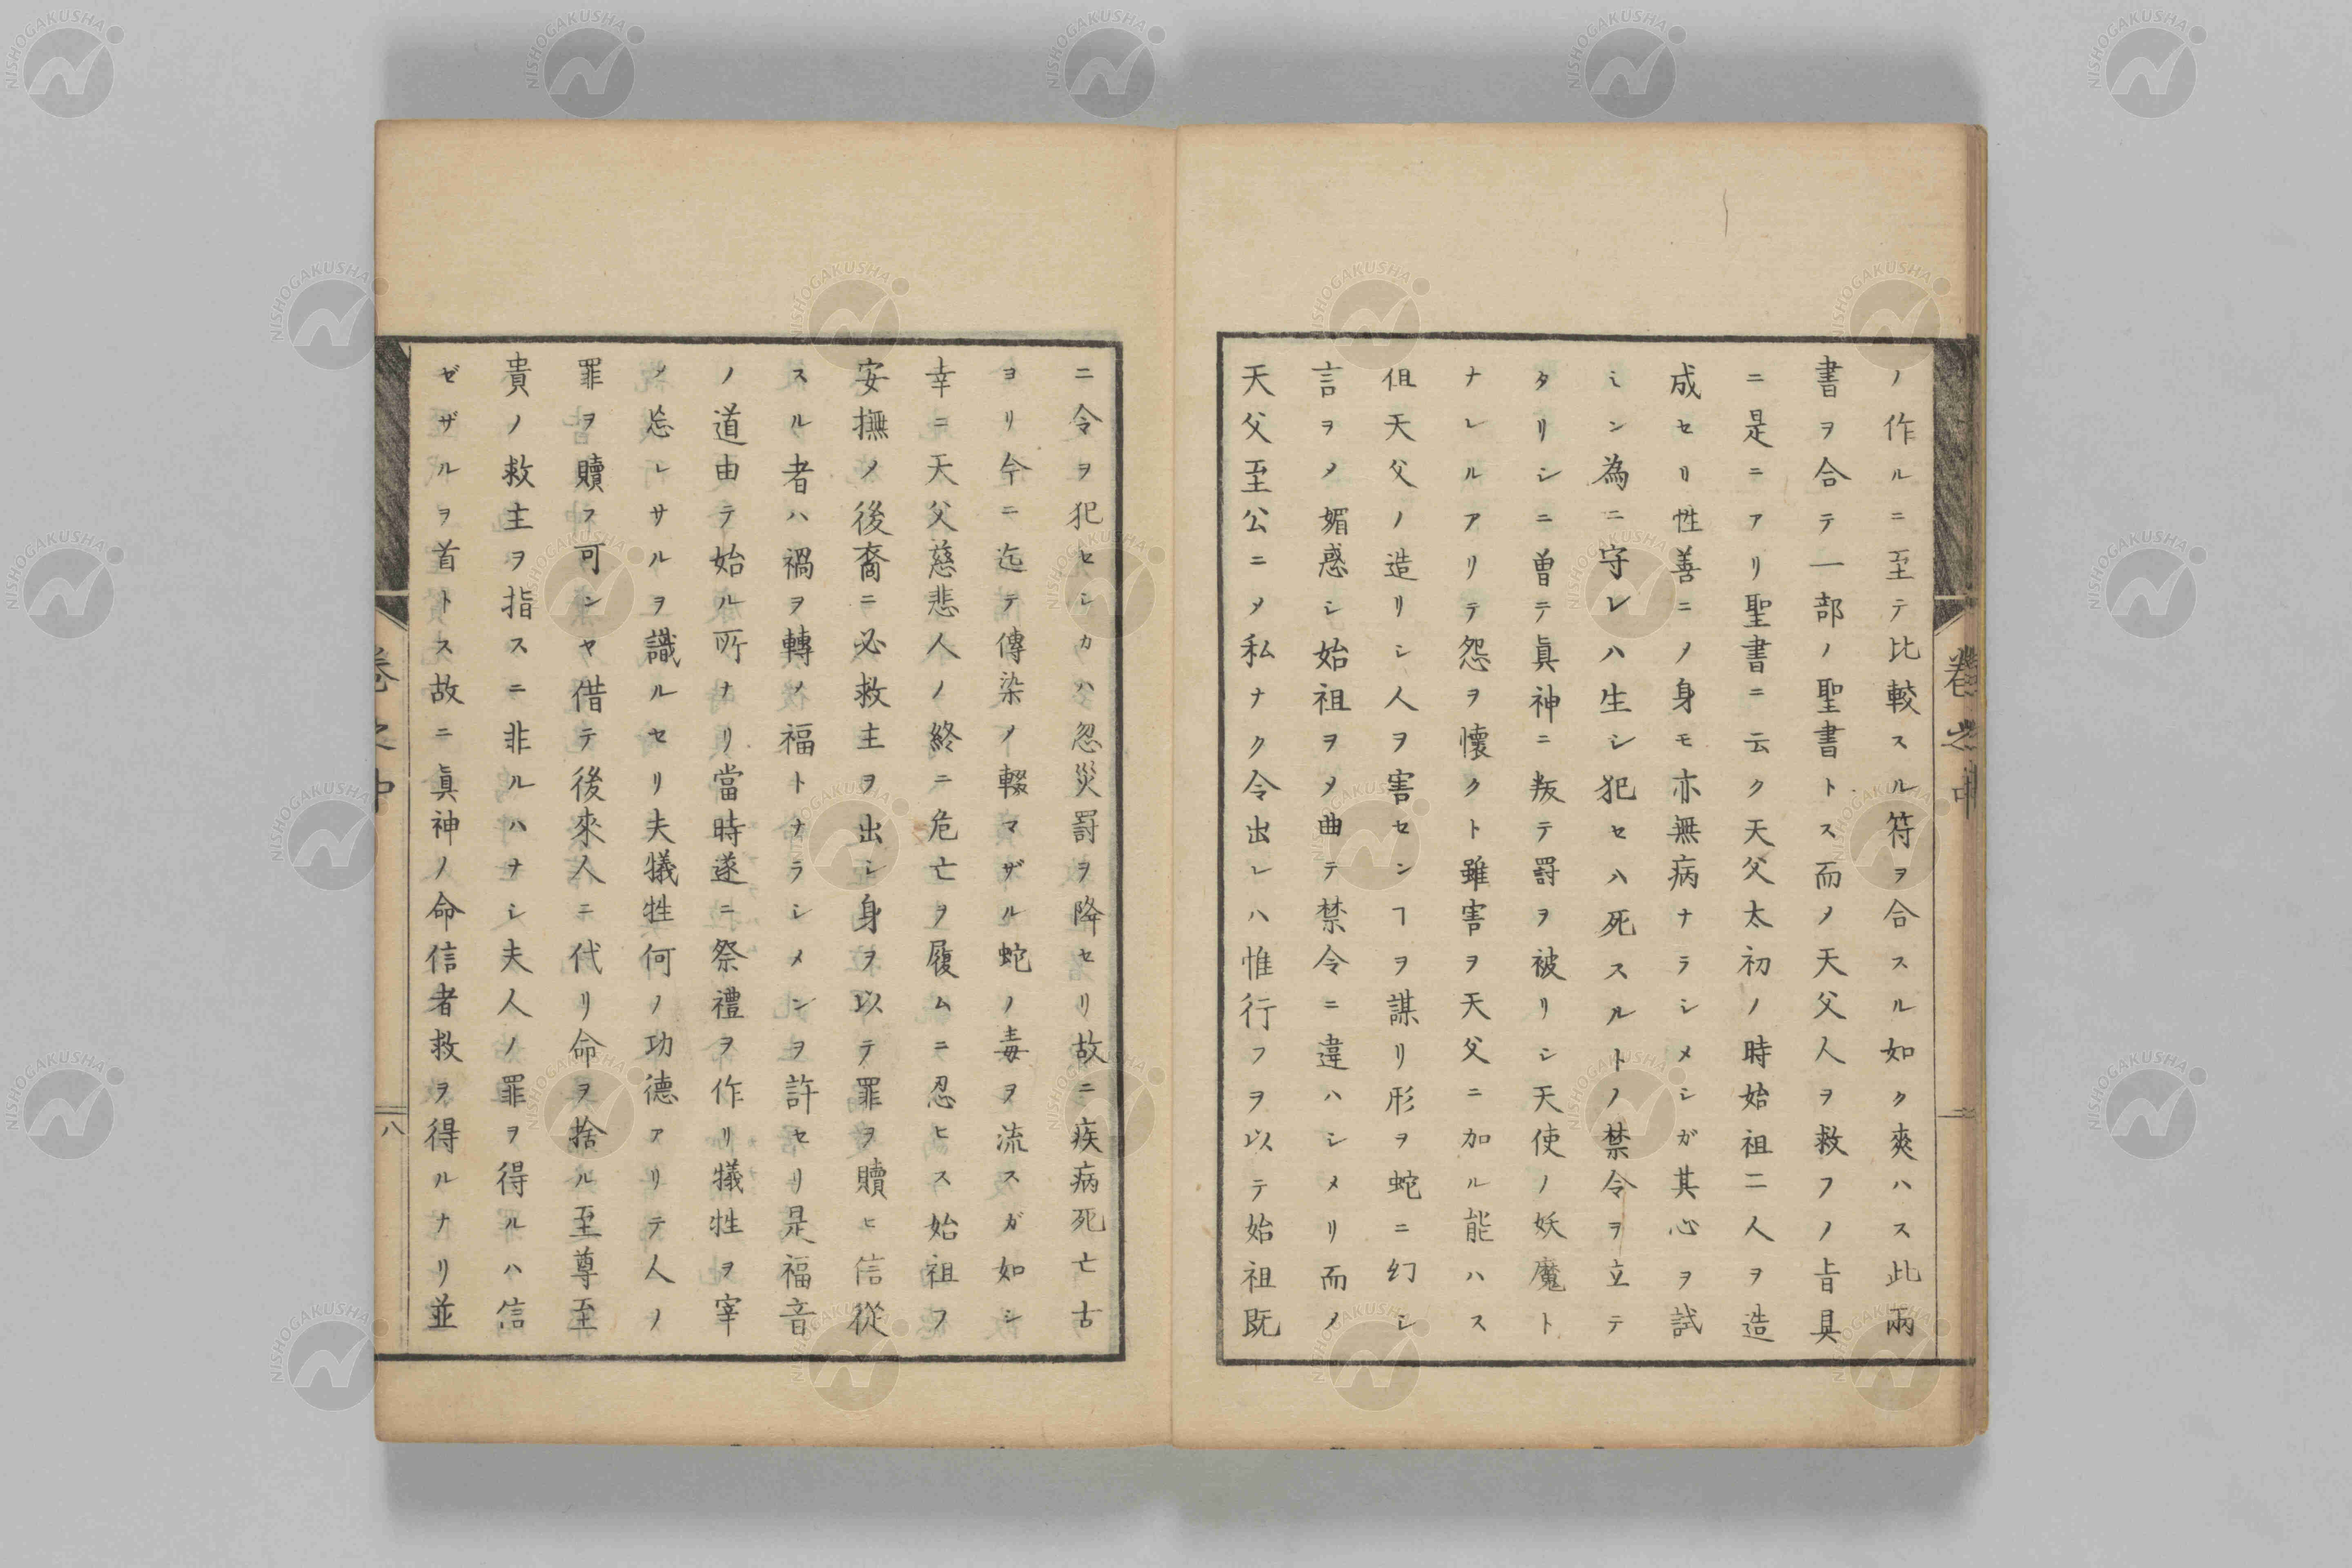 ノ作ルニ至テ比較スル符ヲ合スル如ク爽ハス此兩
書ヲ合テ一部ノ聖書トス而ノ天父人ヲ救フノ旨具
ニ是ニアリ聖書ニ云ク天父太初ノ時始祖二人ヲ造
成セリ性善ニノ身モ亦無病ナラシメシガ其心ヲ試
ミン為ニ守レハ生シ犯セハ死スルトノ禁令ヲ立テ
タリシニ曽テ眞神ニ叛テ罰ヲ被リシ天使ノ妖魔ト
ナレルアリテ怨ヲ懷クト雖害ヲ天父ニ加ル能ハス
伹天父ノ造リシ人ヲ害センヿヲ謀リ形ヲ蛇ニ幻シ
言ヲメ媚惑シ始祖ヲメ曲テ禁令ニ違ハシメリ而ノ
天父至公ニメ私ナク令出レハ惟行フヲ以テ始祖既
ニ令ヲ犯セシカハ忽災罰ヲ降セリ故ニ疾病死亡古
ヨリ今ニ迄テ傳染ノ輟マザル蛇ノ毒ヲ流スガ如シ
幸ニ天父慈悲人ノ終ニ危亡ヲ履ムニ忍ヒス始祖フ
安撫ノ後裔ニ必救主ヲ出シ身ヲ以テ罪ヲ贖ヒ信從
スル者ハ禍ヲ轉ノ福トナラシメンヲ許セリ是福音
ノ道由テ始ル所ナリ當時遂ニ祭禮ヲ作リ犠牲ヲ宰
メ忘レサルヲ識ルセリ夫犠牲何ノ功德アリテ人ノ
罪ヲ贖フ可ンヤ借テ後來人ニ代リ命ヲ捨ル至尊至
貴ノ救主ヲ指スニ非ルハナシ夫人ノ罪ヲ得ルハ信
ゼザルヲ首トス故ニ眞神ノ命信者救ヲ得ルナリ並
卷之中
八
卷之中
NISHOGAKUSHA